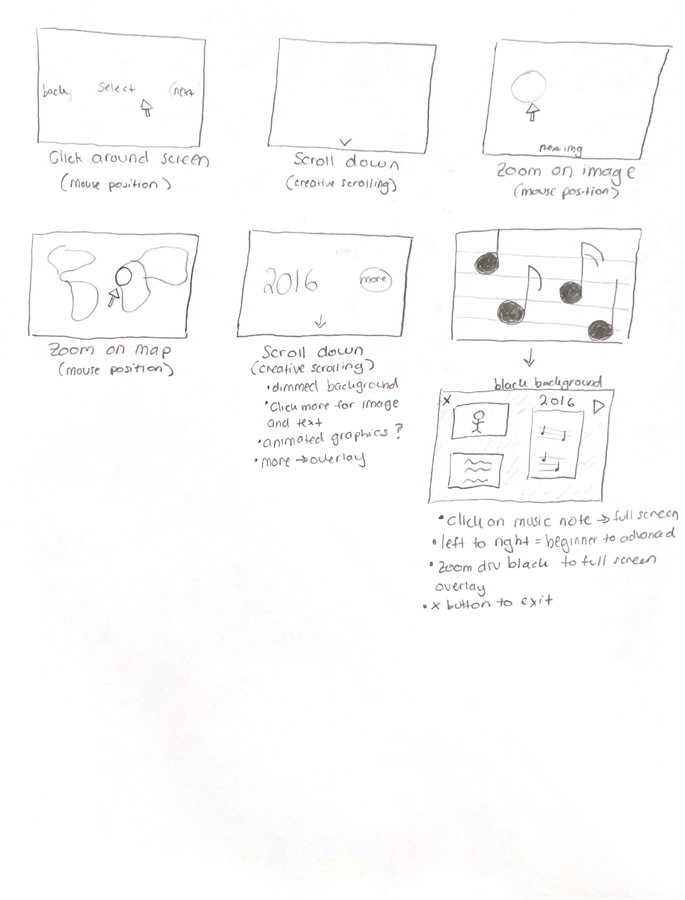 back
Select
next
Click around screen
(mouse position)
Scroll down
(creative scrolling)
next img
Zoom on image
(mouse position)
Zoom on map
(mouse position)
2016
more
Scroll down
(creative scrolling)
•dimmed background
•Click more for image
and text
•animated graphics?
•more → overlay
black background
x
2016
•Click on music note → full screen
•left to right = beginner to advanced
•Zoom div black to full screen
overlay
•x button to exit